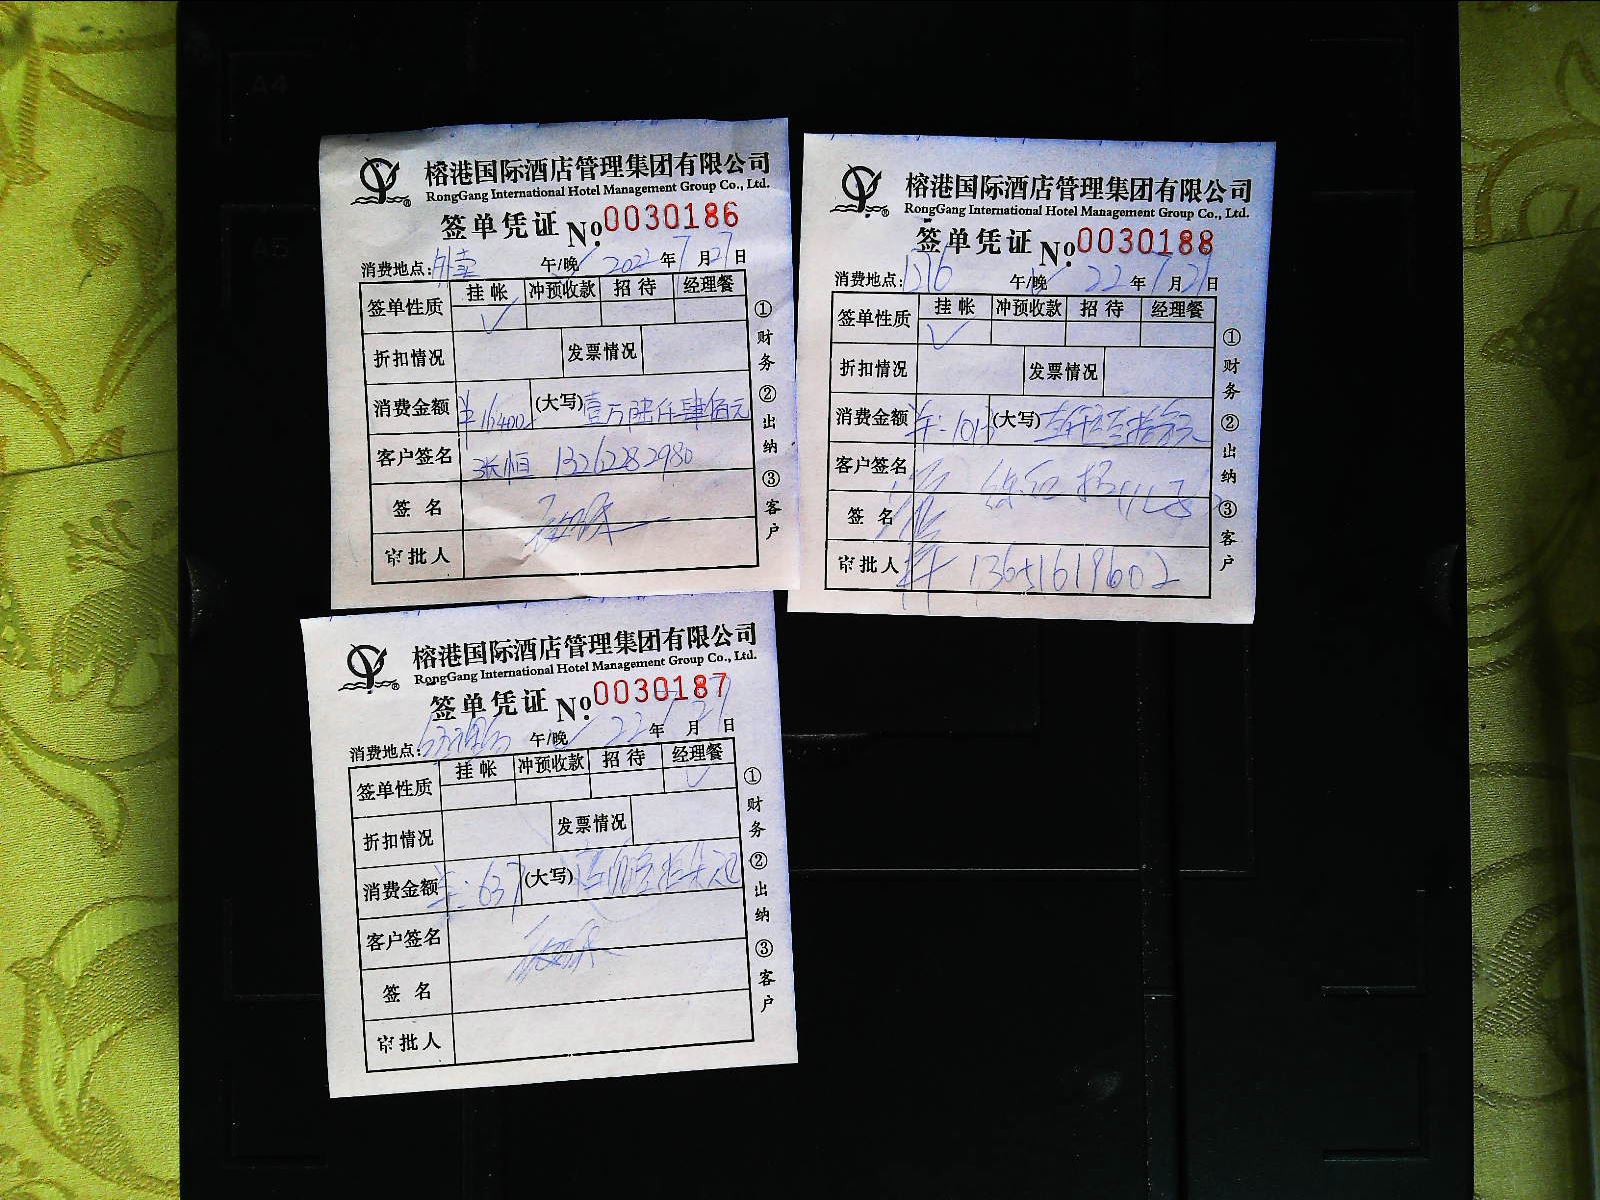 榕港国际酒店管理集团有限公司
RongGang International Hotel Management Group Co., Ltd.
签单凭证 No.0030186
消费地点:外卖 午/晚 2022年7月27日
签单性质 挂帐 冲预收款 招待 经理餐
折扣情况 发票情况
消费金额 ¥16400 (大写)壹万陆仟肆佰元
客户签名 张恒 13262282980
签名
审批人
①财务 ②出纳 ③客户
榕港国际酒店管理集团有限公司
RongGang International Hotel Management Group Co., Ltd.
签单凭证 No.0030188
消费地点:1216 午/晚 22年7月日
签单性质 挂帐 冲预收款 招待 经理餐
折扣情况 发票情况
消费金额 (大写)
客户签名
签名
审批人 13651619602
①财务 ②出纳 ③客户
榕港国际酒店管理集团有限公司
RongGang International Hotel Management Group Co., Ltd.
签单凭证 No.0030187
消费地点: 午/晚 22年7月27日
签单性质 挂帐 冲预收款 招待 经理餐
折扣情况 发票情况
消费金额 ¥:637 (大写)
客户签名
签名
审批人
①财务 ②出纳 ③客户
A4
A5